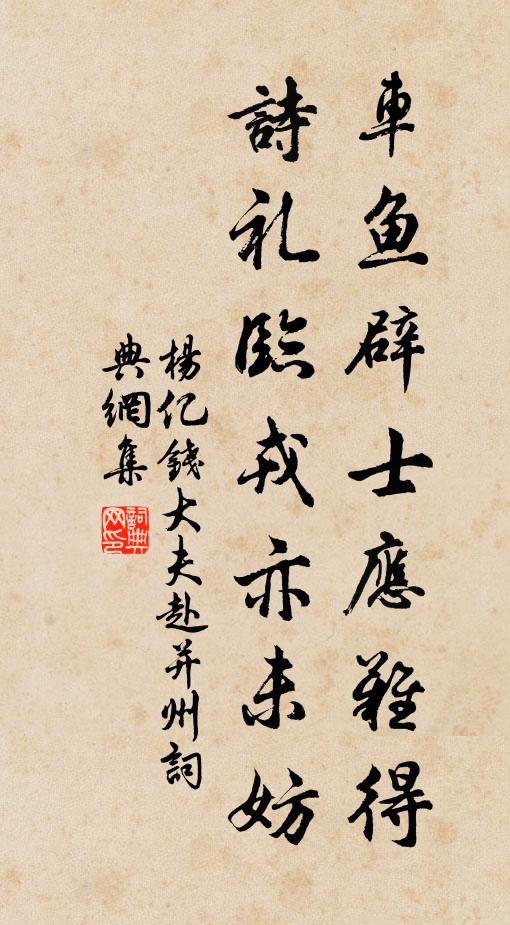 車鱼辟士應難得
詩礼臨戎亦未妨
楊亿錢大夫赴并州詞
典網集
詞典網印